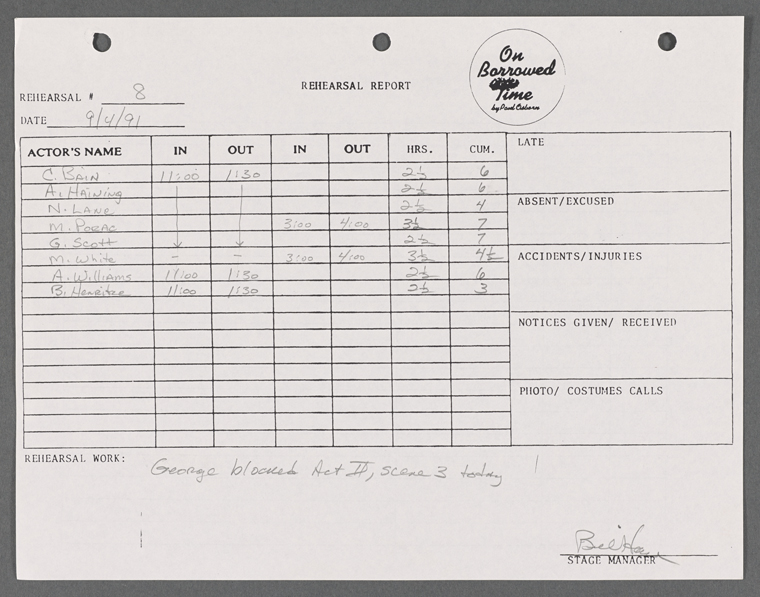 On
Borrowed
Time
by Paul Osborn
REHEARSAL REPORT
REHEARSAL # 8
DATE 9/4/91
ACTOR'S NAME IN OUT IN OUT HRS. CUM.
C. Bain 11:00 1:30 2½ 6
A. Haining 2½ 6
N. Lane 2½ 4
M. 3:00 4:00 3½ 7
G. Scott 2½ 7
M. White - - 3:00 4:00 3½ 4½
A. Williams 11:00 1:30 2½ 6
B. 11:00 1:30 2½ 3
LATE
ABSENT/EXCUSED
ACCIDENTS/INJURIES
NOTICES GIVEN/ RECEIVED
PHOTO/ COSTUMES CALLS
REHEARSAL WORK:
George blocked Act II, scene 3 today
STAGE MANAGER